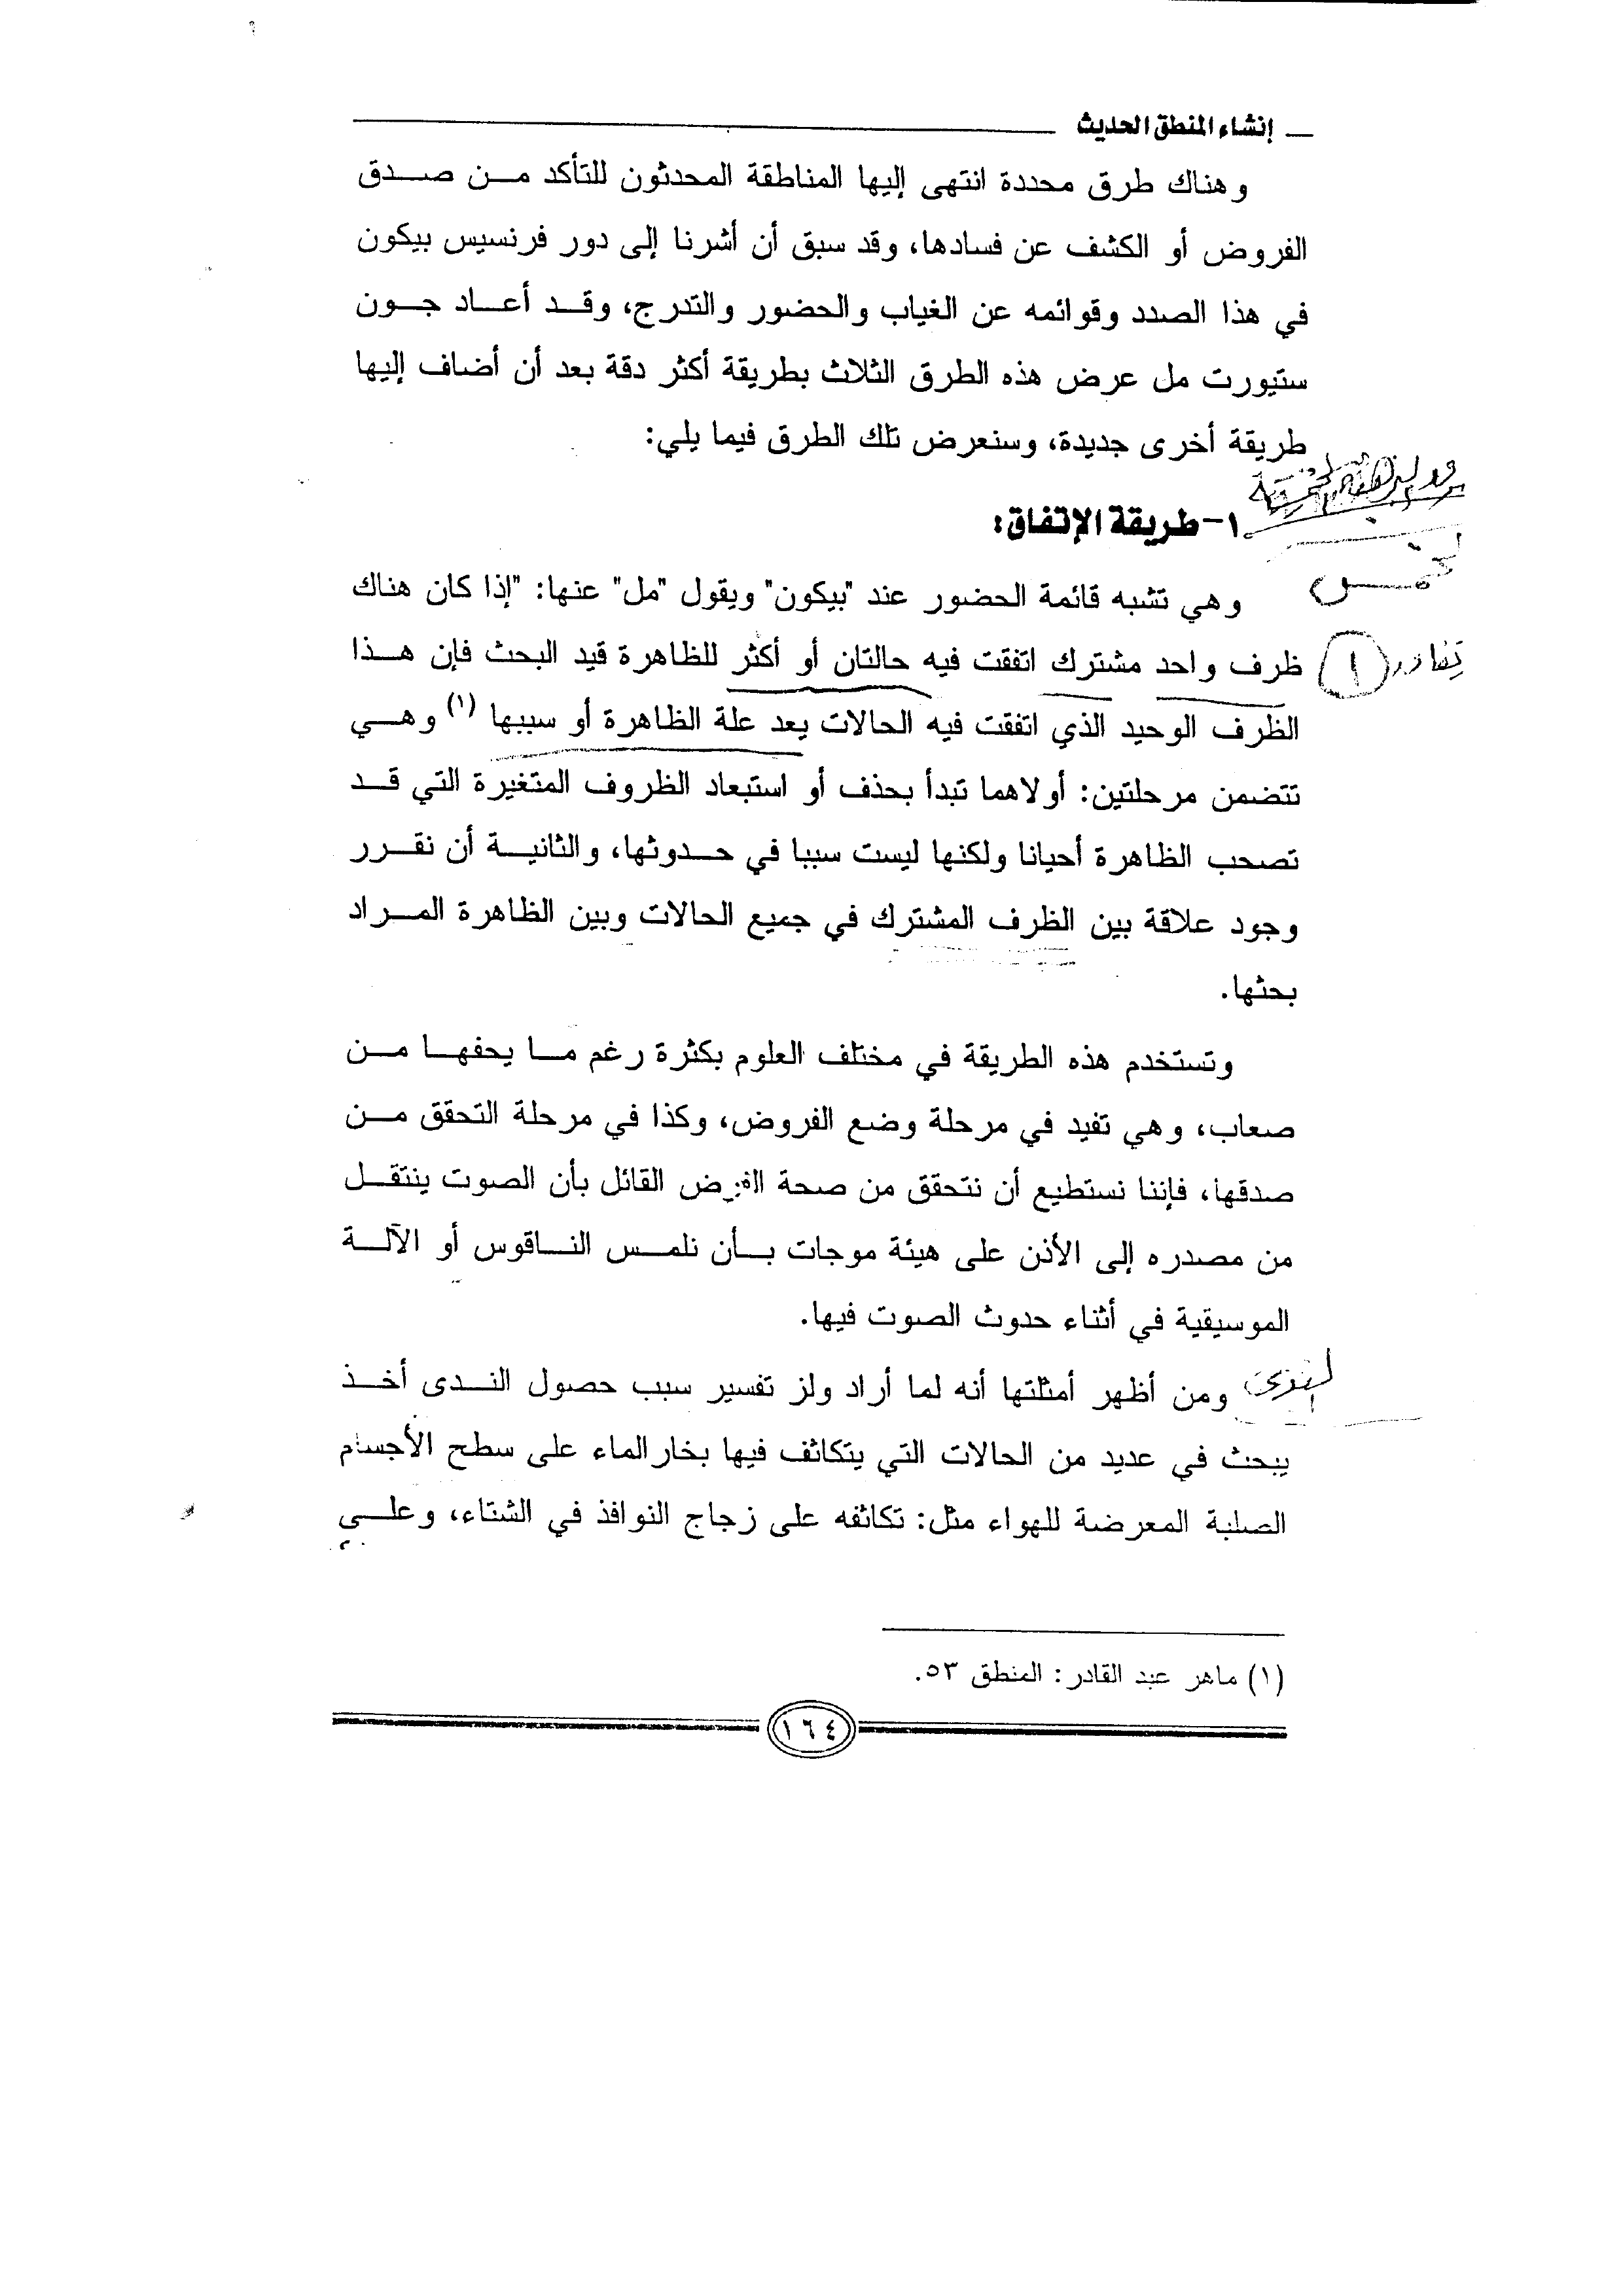 إنشاء المنطق الحديث
وهناك طرق محددة انتهى إليها المناطقة المحدثون للتأكد من صدق
الفروض أو الكشف عن فسادها، وقد سبق أن أشرنا إلى دور فرنسيس بيكون
في هذا الصدد وقوائمه عن الغياب والحضور والتدرج، وقد أعاد جون
ستيورت مل عرض هذه الطرق الثلاث بطريقة أكثر دقة بعد أن أضاف إليها
طريقة أخرى جديدة، وسنعرض تلك الطرق فيما يلي:
١- طريقة الإتفاق:
وهي تشبه قائمة الحضور عند "بيكون" ويقول "مل" عنها: "إذا كان هناك
ظرف واحد مشترك اتفقت فيه حالتان أو أكثر للظاهرة قيد البحث فإن هذا
١
الظرف الوحيد الذي اتفقت فيه الحالات يعد علة الظاهرة أو سببها (١) وهي
تتضمن مرحلتين: أولاهما تبدأ بحذف أو استبعاد الظروف المتغيرة التي قد
تصحب الظاهرة أحيانا ولكنها ليست سببا في حدوثها، والثانية أن نقرر
وجود علاقة بين الظرف المشترك في جميع الحالات وبين الظاهرة المراد
بحثها.
وتستخدم هذه الطريقة في مختلف العلوم بكثرة رغم ما يحفها من
صعاب، وهي تفيد في مرحلة وضع الفروض، وكذا في مرحلة التحقق من
صدقها، فإننا نستطيع أن نتحقق من صحة الفرض القائل بأن الصوت ينتقل
من مصدره إلى الأذن على هيئة موجات بأن نلمس الناقوس أو الآلة
الموسيقية في أثناء حدوث الصوت فيها.
ومن أظهر أمثلتها أنه لما أراد ولز تفسير سبب حصول الندى أخذ
يبحث في عديد من الحالات التي يتكاثف فيها بخار الماء على سطح الأجسام
الصلبة المعرضة للهواء مثل: تكاثفه على زجاج النوافذ في الشتاء، وعلى
(١) ماهر عبد القادر: المنطق ٥٣.
١٦٤